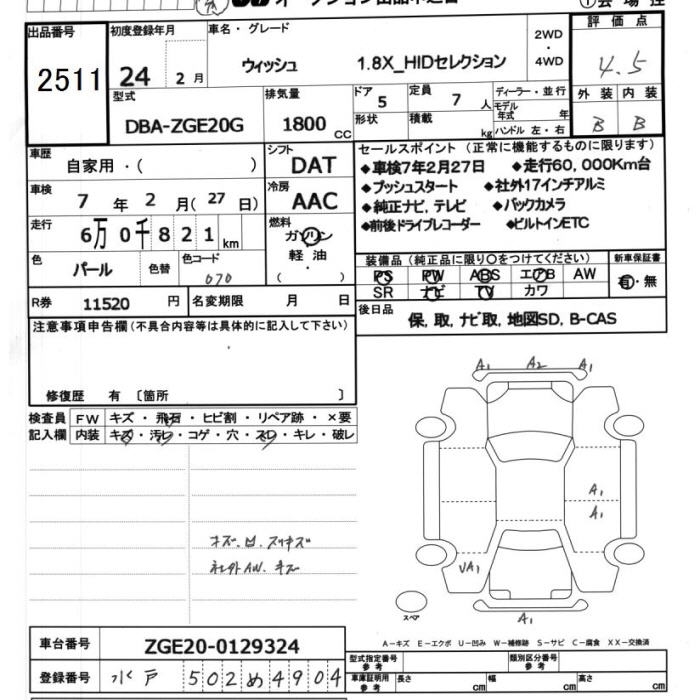 出品番号 2511
初度登録年月 24 2月
車名・グレード ウィッシュ 1.8X_HIDセレクション
2WD・4WD
評価点 4.5
外装 B 内装 B
型式 DBA-ZGE20G
排気量 1800 CC
ドア 5 形状
定員 7 人
積載 kg
ディーラー・並行
モデル年式 年
ハンドル 左・右
車歴 自家用・( )
シフト DAT
車検 7年 2月(27日)
冷房 AAC
走行 6万0千821km
燃料 ガソリン 軽油 ( )
色 パール 色替 色コード 070
R券 11520 円 名変期限 月 日
セールスポイント (正常に機能するものに限ります)
◆車検7年2月27日 ◆走行60,000Km台
◆プッシュスタート ◆社外17インチアルミ
◆純正ナビ,テレビ ◆バックカメラ
◆前後ドライブレコーダー ◆ビルトインETC
装備品 (純正品に限り〇をつけてください) 新車保証書
PS PW ABS エアB AW 有・無
SR ナビ TV カワ
後日品 保,取,ナビ取,地図SD,B-CAS
注意事項申告欄(不具合内容等は具体的に記入して下さい)
修復歴 有 〔箇所 〕
検査員記入欄
FW キズ・飛石・ヒビ割・リペア跡・×要
内装 キズ・汚レ・コゲ・穴・スレ・キレ・破レ
A1 A2 A1
A1
A1
UA1
A1
スペア
キズ.凹.スリキズ
社外AW.キズ
A-キズ E-エクボ U-凹み W-補修跡 S-サビ C-腐食 XX-交換済
車台番号 ZGE20-0129324
登録番号 水戸 502め4904
型式指定番号参考 類別区分番号参考
車庫証明用参考 長さ cm 幅 cm 高さ cm